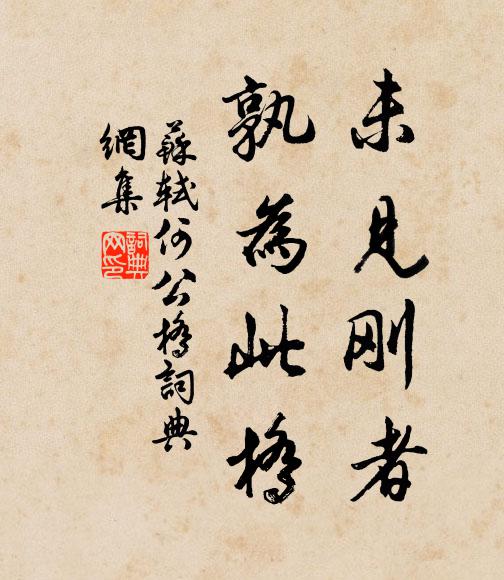 未見刚者
孰為此橋
蘇軾何公橋詞典
網集
詞典
网印